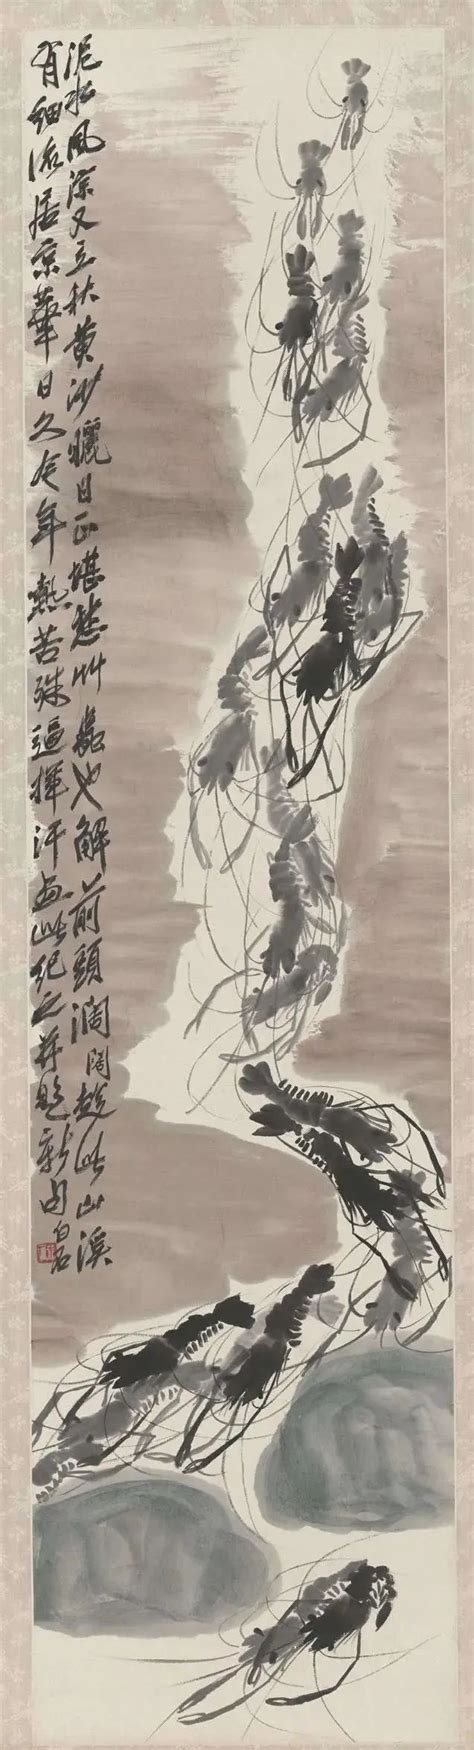 泥水風涼又立秋黃沙曬日正堪愁艸蟲也解前頭濶闊趁此山溪
有細流居京華日久今年熱苦殊逼揮汗畫此紀之并題新句白石